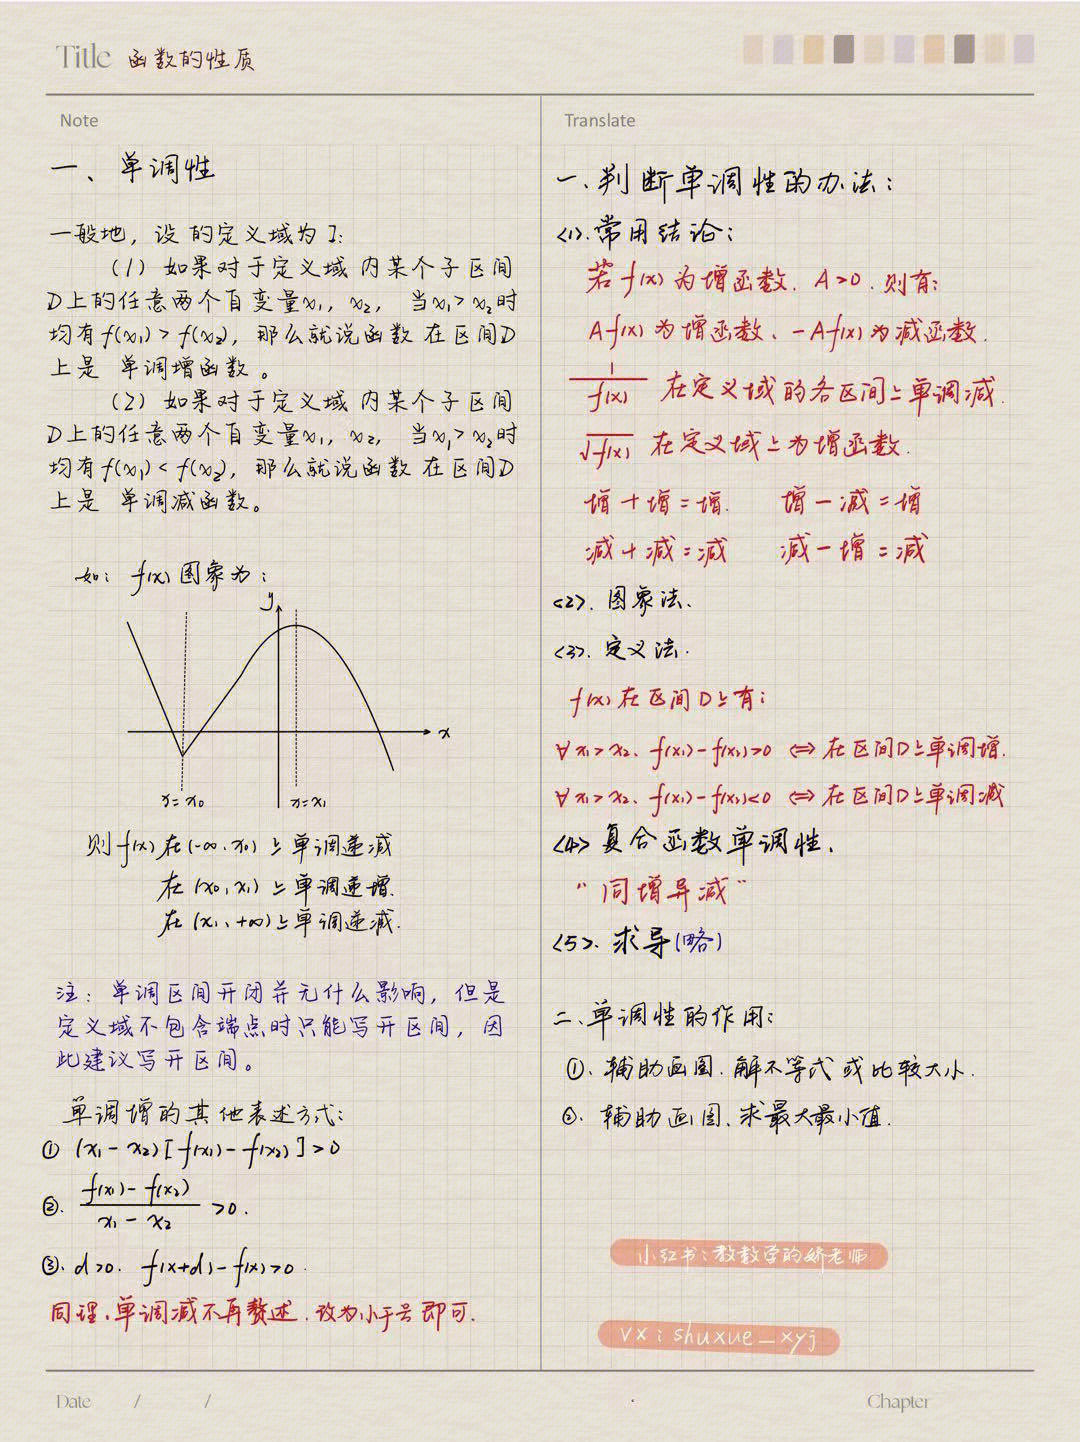 Title 函数的性质
Note
一、单调性
一般地，设 的定义域为 I：
（1）如果对于定义域 内某个子区间
D上的任意两个自变量x₁，x₂， 当x₁>x₂时
均有f(x₁)>f(x₂)，那么就说函数 在区间D
上是 单调增函数。
（2）如果对于定义域 内某个子区间
D上的任意两个自变量x₁，x₂， 当x₁>x₂时
均有f(x₁)<f(x₂)，那么就说函数 在区间D
上是 单调减函数。
如：f(x)图象为：
y
x
x=x₀ x=x₁
则f(x)在(-∞,x₀)上单调递减
在(x₀,x₁)上单调递增.
在(x₁,+∞)上单调递减.
注：单调区间开闭并无什么影响，但是
定义域不包含端点时只能写开区间，因
此建议写开区间。
单调增的其他表述方式：
① (x₁-x₂)[f(x₁)-f(x₂)]>0
②. \frac{f(x₁)-f(x₂)}{x₁-x₂}>0.
③. d>0. f(x+d)-f(x)>0.
同理,单调减不再赘述.改为小于号即可.
Translate
一.判断单调性的办法：
<1>.常用结论：
若f(x)为增函数. A>0.则有:
Af(x)为增函数、-Af(x)为减函数.
\frac{1}{f(x)} 在定义域的各区间上单调减.
√f(x) 在定义域上为增函数.
增+增=增. 增-减=增
减+减=减 减-增=减
<2>.图象法、
<3>.定义法.
f(x)在区间D上有：
∀x₁>x₂、f(x₁)-f(x₂)>0 ⇔ 在区间D上单调增.
∀x₁>x₂、f(x₁)-f(x₂)<0 ⇔ 在区间D上单调减
<4>复合函数单调性、
“同增异减”
<5>、求导(略)
二、单调性的作用：
①、辅助画图.解不等式或比较大小.
②、辅助画图、求最大最小值.
小红书：教数学的娇老师
vx：shuxue_xyj
Date / /
Chapter